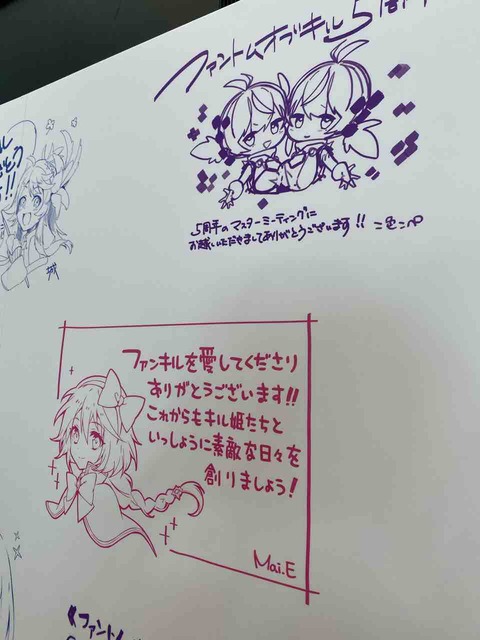 ファントムオブキル5周年
5周年のマスターミーティングに
お越しいただきましてありがとうございます!!
ファンキルを愛してくださり
ありがとうございます!!
これからもキル姫たちと
いっしょに素敵な日々を
創りましょう!
Mai.E